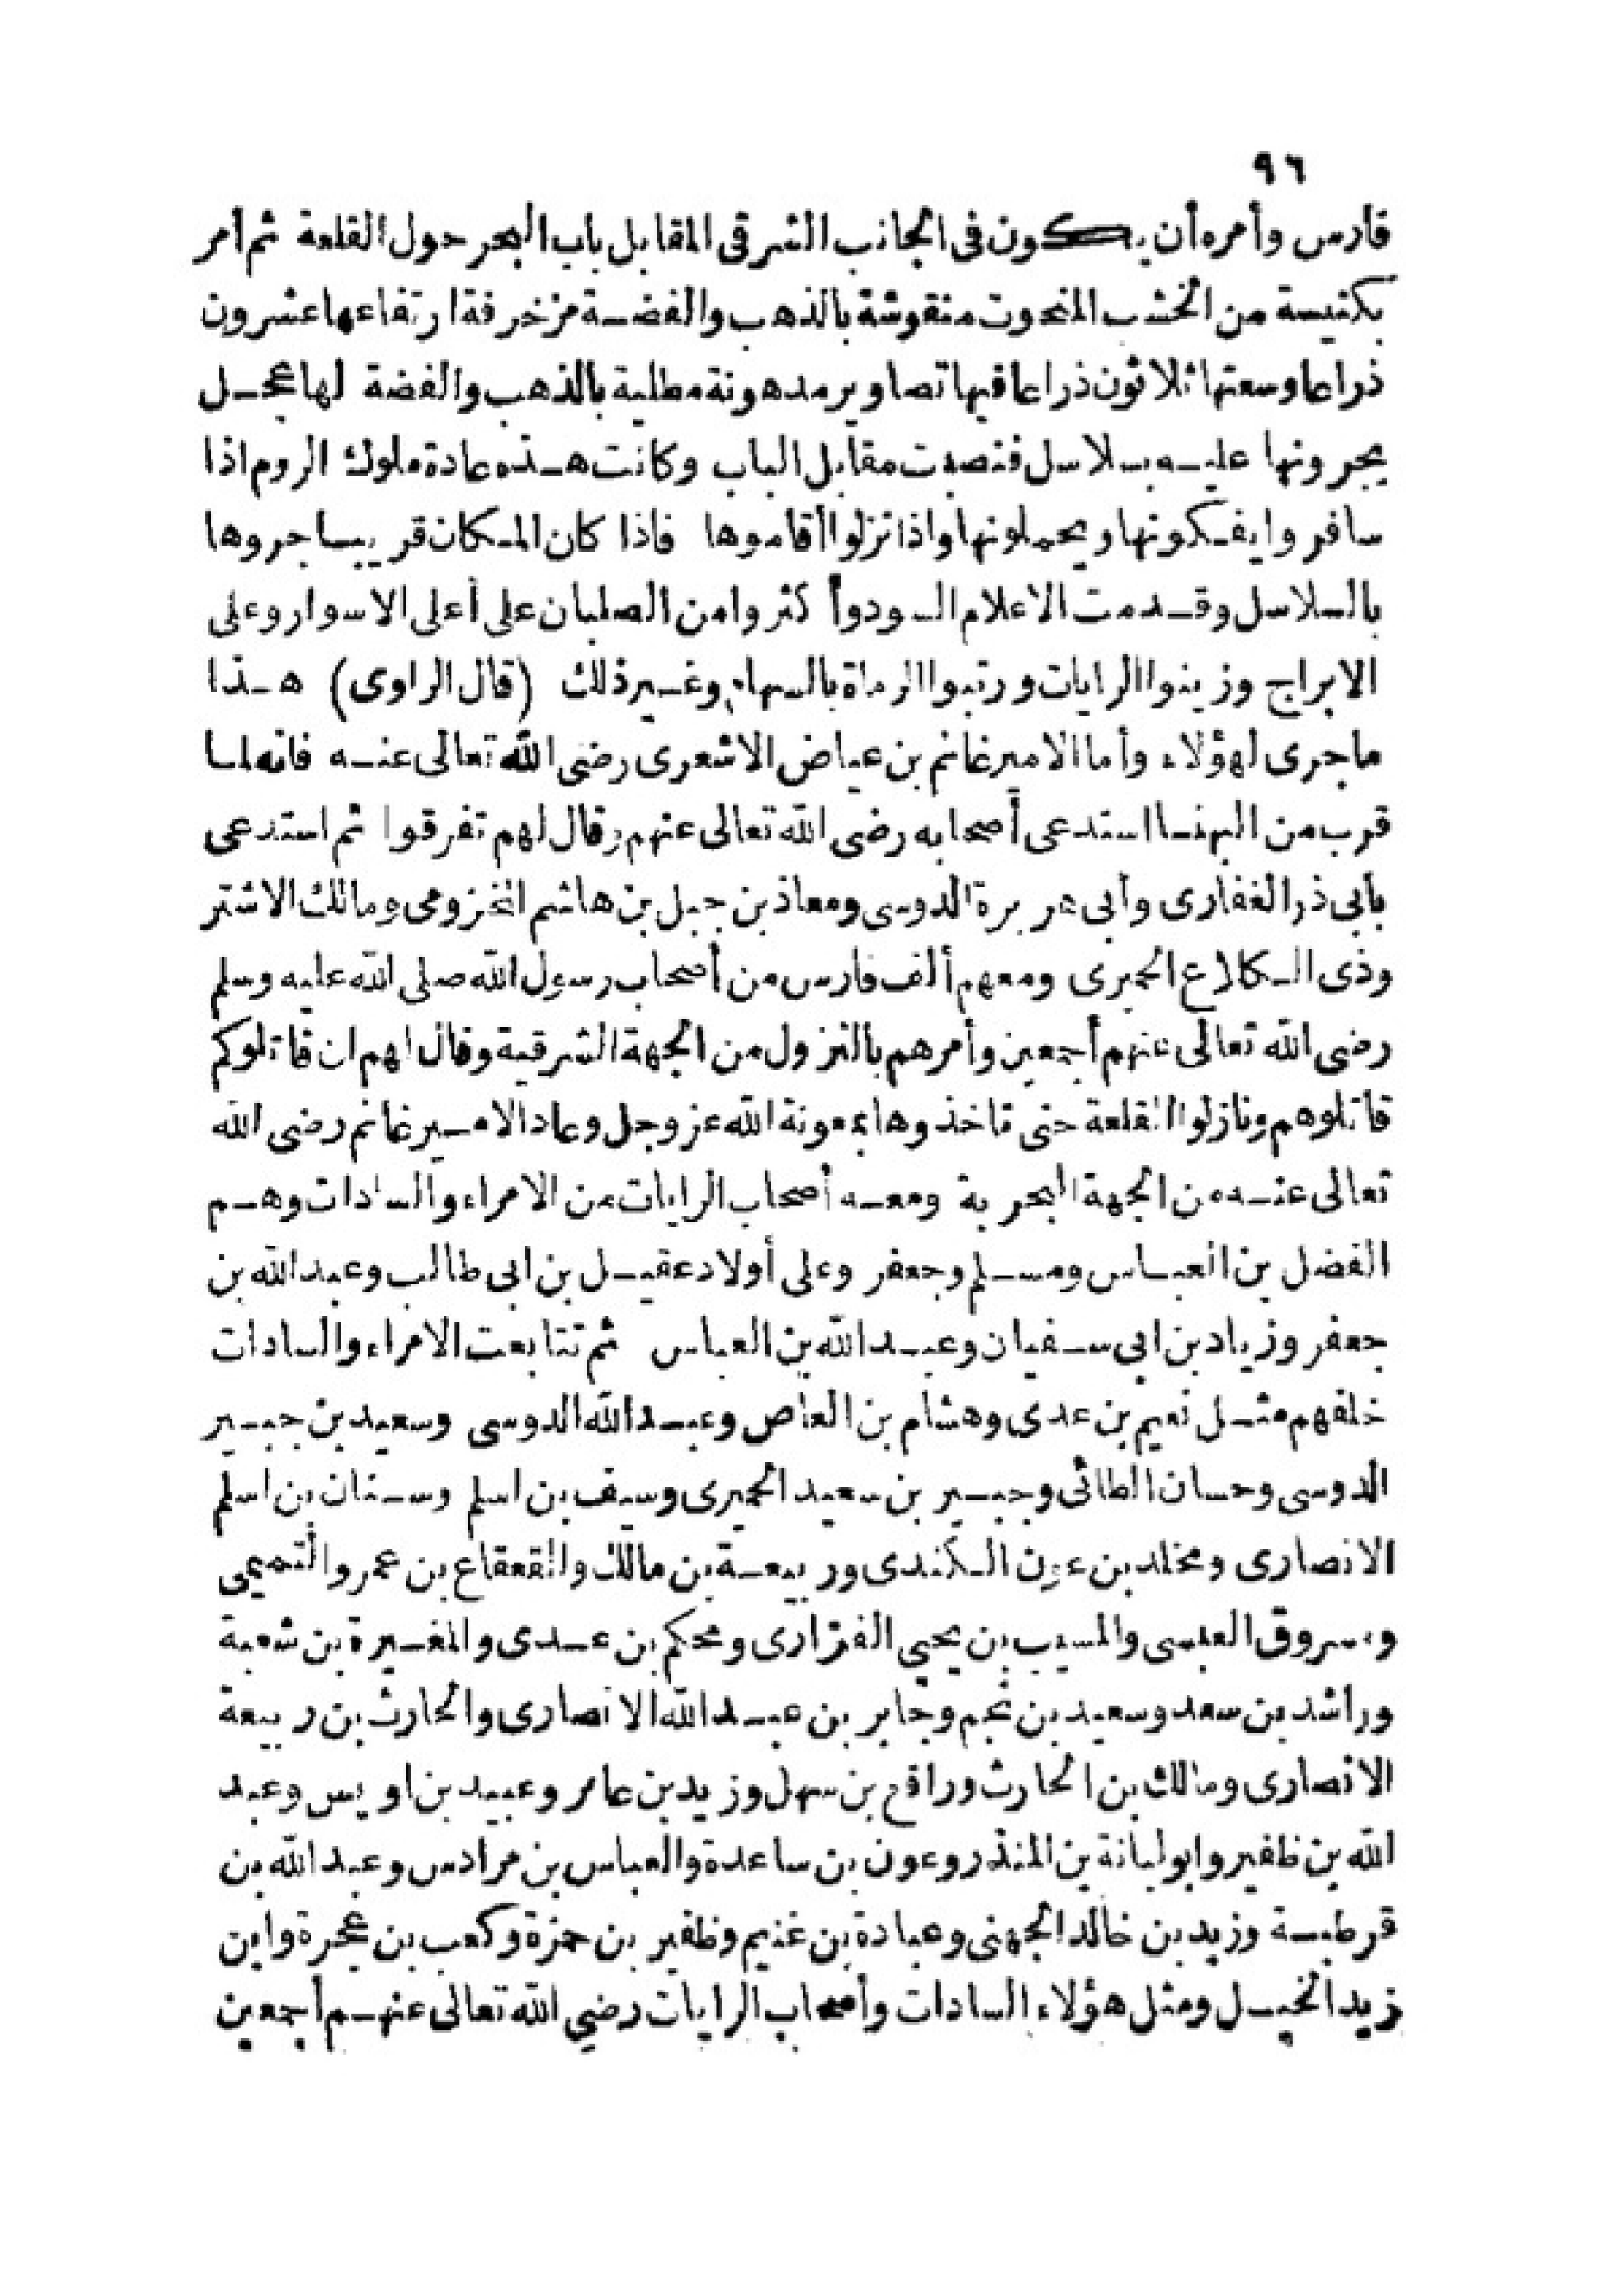 ٩٦
فارس وأمره أن يكون فى الجانب الشرقى المقابل باب البحر حول القلعة ثم أمر
بكنيسة من الخشب المنحوت منقوشة بالذهب والفضة مزخرفة ارتفاعها عشرون
ذراعا وسعتها ثلاثون ذراعا فيها تصاوير مدهونة مطلية بالذهب والفضة لها عجل
يجرونها عليه بسلاسل فنصبت مقابل الباب وكانت هذه عادة ملوك الروم اذا
سافروا يفكونها ويحملونها واذا نزلوا أقاموها فاذا كان المكان قريبا جروها
بالسلاسل وقدمت الاعلام السود وأكثروا من الصلبان على أعلى الاسوار وعلى
الابراج وزينوا الرايات ورتبوا الرماة بالسهام وغير ذلك (قال الراوى) هذا
ماجرى لهؤلاء وأما الامير غانم بن عياض الاشعرى رضى الله تعالى عنه فانه لما
قرب من البهنسا استدعى أصحابه رضى الله تعالى عنهم وقال لهم تفرقوا ثم استدعى
بأبى ذر الغفارى وأبى هريرة الدوسى ومعاذ بن جبل بن هاشم المخزومى ومالك الاشتر
وذى الكلاع الحميرى ومعهم ألف فارس من أصحاب رسول الله صلى الله عليه وسلم
رضى الله تعالى عنهم أجمعين وأمرهم بالنزول من الجهة الشرقية وقال لهم ان قاتلوكم
قاتلوهم ونازلوا القلعة حتى تاخذوها بمعونة الله عز وجل وعاد الامير غانم رضى الله
تعالى عنه من الجهة البحرية ومعه أصحاب الرايات من الامراء والسادات وهم
الفضل بن العباس ومسلم وجعفر وعلى أولاد عقيل بن ابى طالب وعبد الله بن
جعفر وزياد بن ابى سفيان وعبد الله بن العباس ثم تتابعت الامراء والسادات
خلفهم مثل نعيم بن عدى وهشام بن العاص وعبد الله الدوسى وسعيد بن جبير
الدوسى وحسان الطائى وجبير بن سعيد الحميرى وسيف بن اسلم وسنان بن اسلم
الانصارى ومخلد بن عون الكندى وربيعة بن مالك والقعقاع بن عمرو التميمى
ومسروق العبسى والمسيب بن يحيى الفزارى ومحكم بن عدى والمغيرة بن شعبة
وراشد بن سعد وسعيد بن نجم وجابر بن عبد الله الانصارى والحارث بن ربيعة
الانصارى ومالك بن الحارث ورافع بن سهل وزيد بن عامر وعبيد بن اويس وعبد
الله بن ظفير وابو لبانة بن المنذر وعون بن ساعدة والعباس بن مرادس وعبد الله بن
قرطبسة وزيد بن خالد الجهنى وعبادة بن غنيم وظفير بن حمزة وكعب بن عجرة وابن
زيد الخيل ومثل هؤلاء السادات وأصحاب الرايات رضي الله تعالى عنهم أجمعين